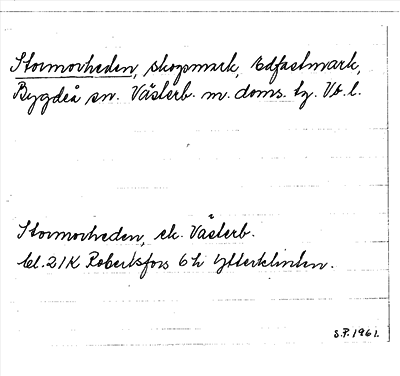 Stormorheden, skogsmark, Edfastmark,
Bygdeå sn. Västerb. m. doms. tg. Vb. l.
Stormorheden, ek. Västerb.
bl. 21K Robertsfors 6 h Ytterklinten.
S.P. 1961.